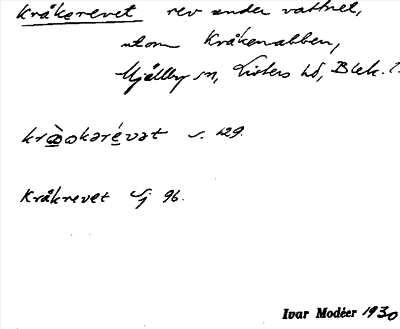 Kråkerevet rev under vattnet,
utom Kråkenabben,
Mjällby sn, Listers hd, Blek. l.
kråokərévət s. 129.
Kråkrevet Sj 96.
Ivar Modéer 1930